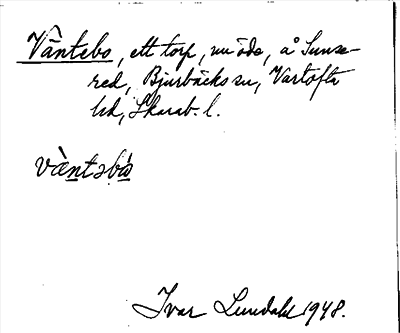 Väntebo, ett torp, nu öde, å Sunne-
red, Bjurbäcks sn, Vartofta
hd, Skarab. l.
væ̀ntəbó
Ivar Lundahl 1948.